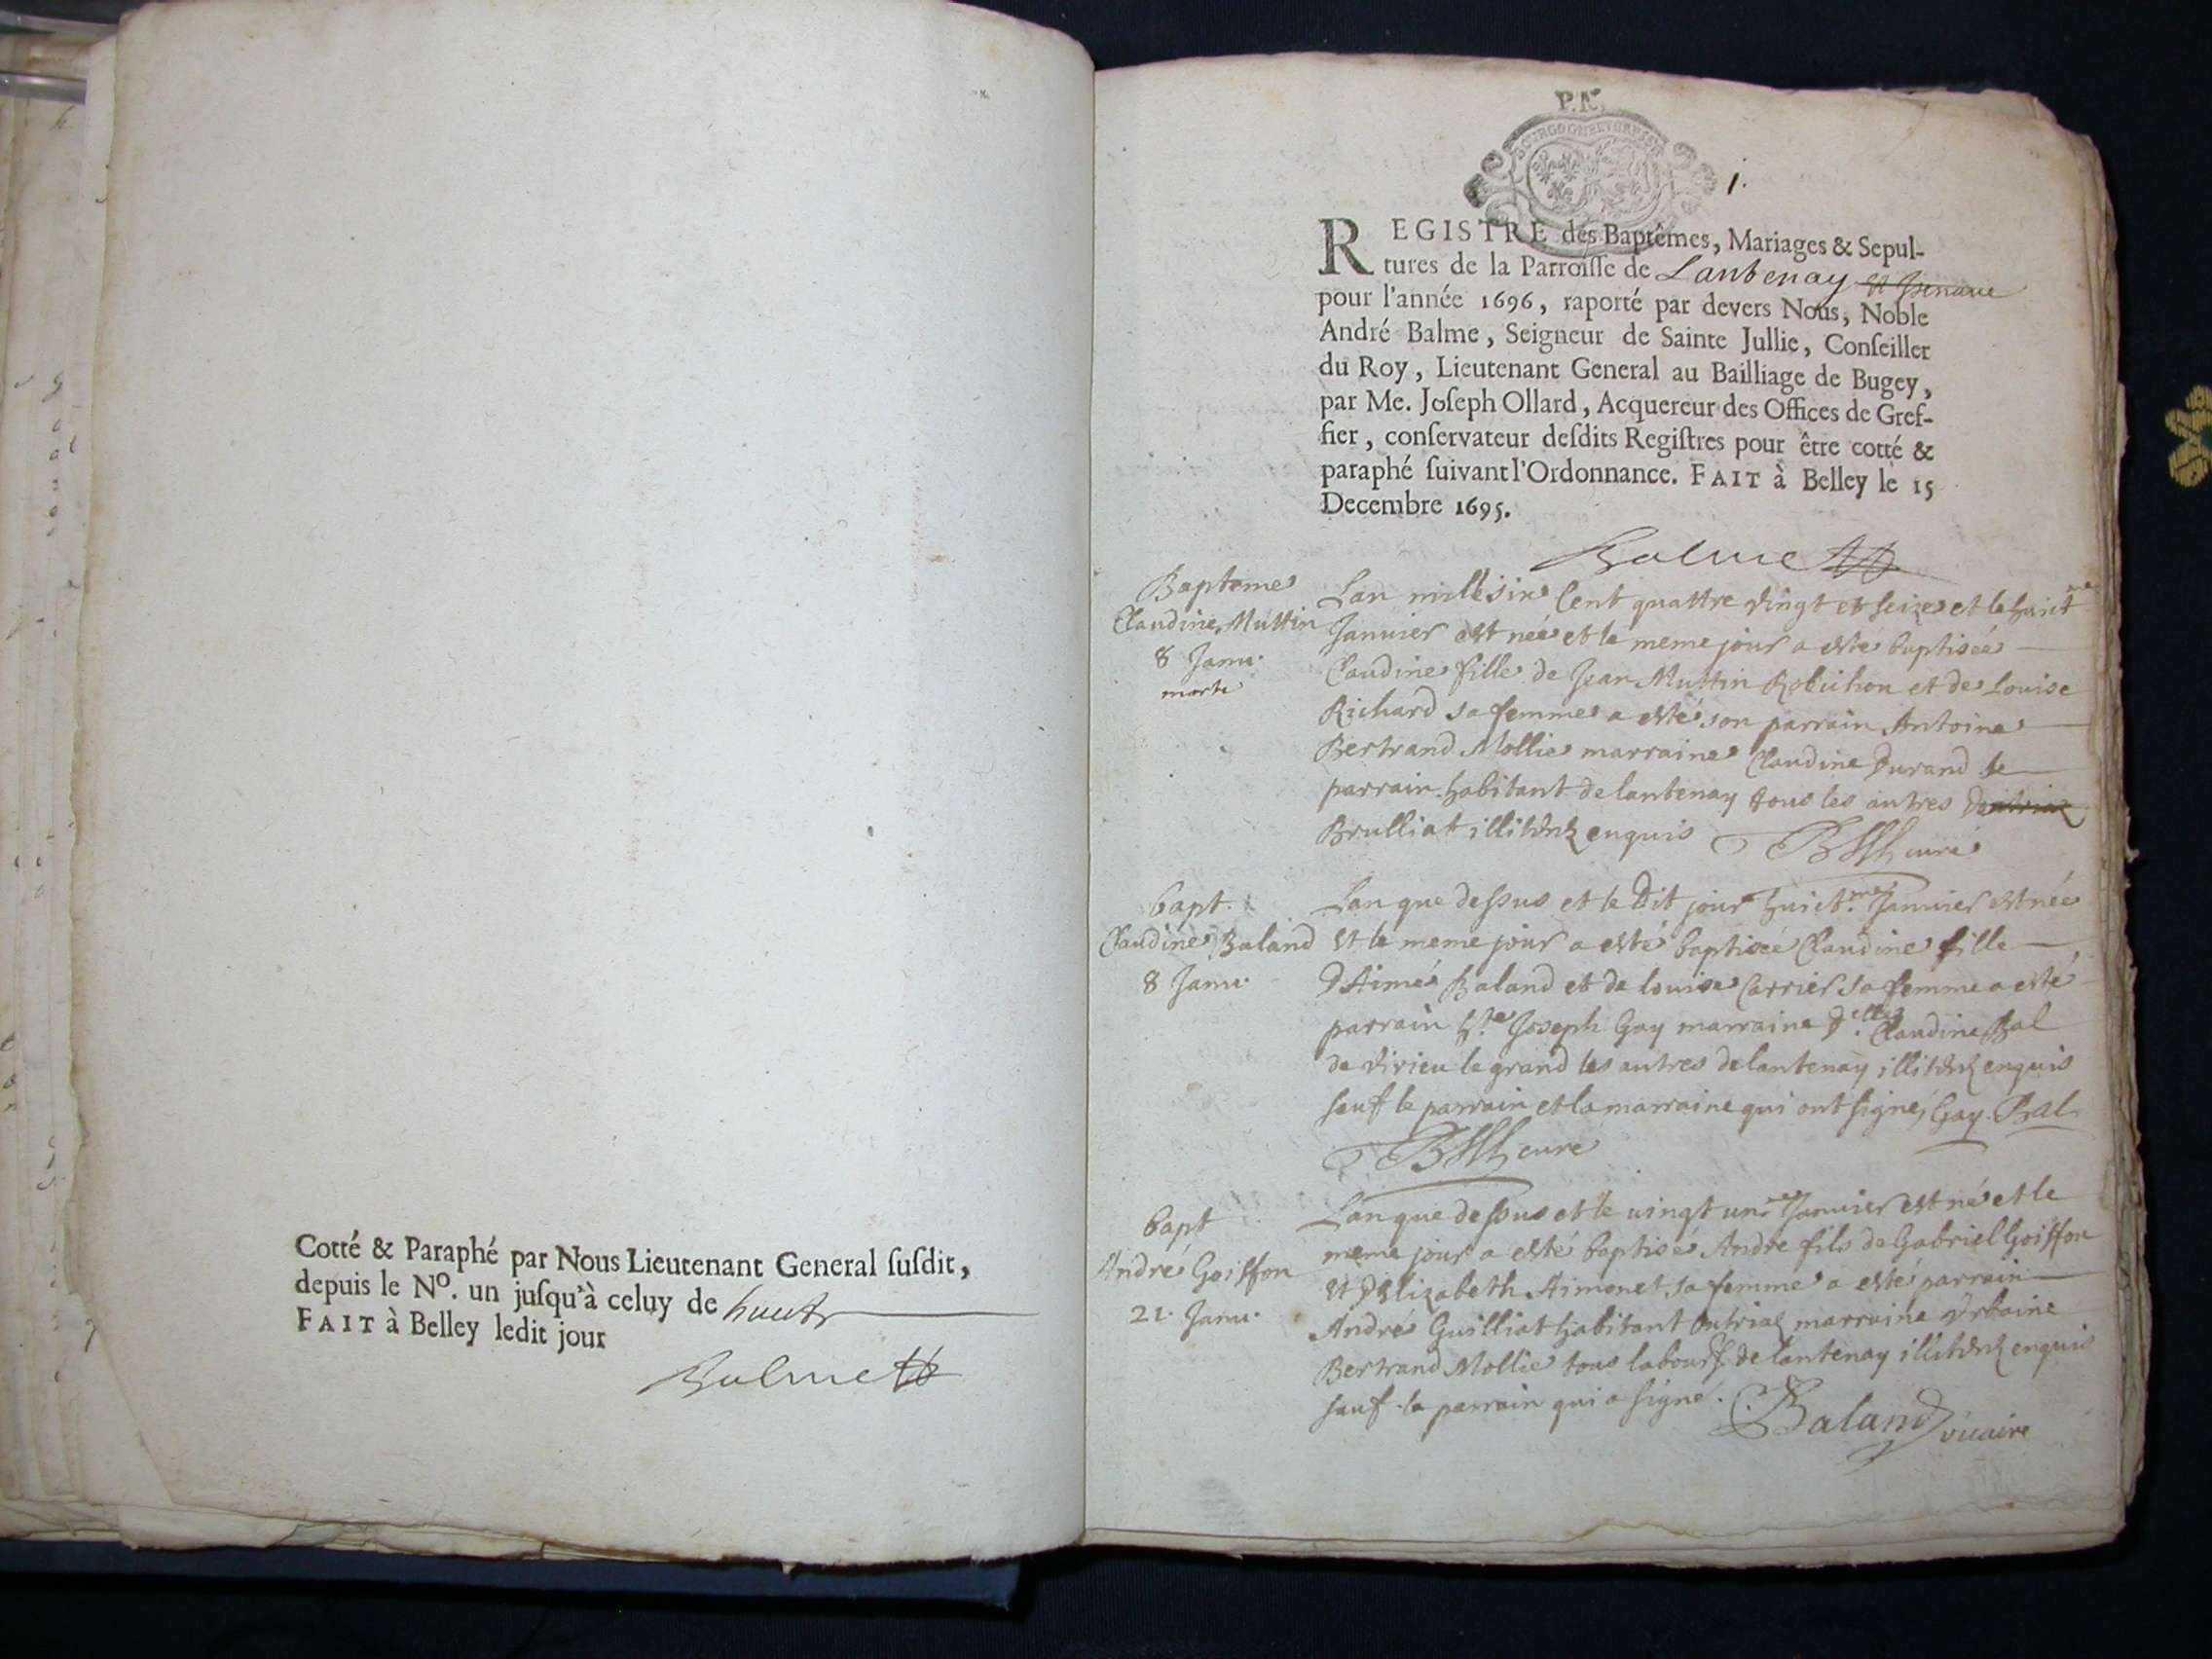 Cotté & Paraphé par Nous Lieutenant General ſuſdit,
depuis le No. un juſqu'à celuy de huict
FAIT à Belley ledit jour
Balme
P. N.
1.
REGISTRE des Baptêmes, Mariages & Sepul-
tures de la Parroiſſe de Lantenay et Izenave
pour l'année 1696, raporté par devers Nous, Noble
André Balme, Seigneur de Sainte Jullie, Conſeiller
du Roy, Lieutenant General au Bailliage de Bugey,
par Me. Joſeph Ollard, Acquereur des Offices de Gref-
fier, conſervateur deſdits Regiſtres pour être cotté &
paraphé ſuivant l'Ordonnance. FAIT à Belley le 15
Decembre 1695.
Balme
Bapteme
Claudine Muttin
8 Janu.
morte
Lan mille six Cent quattre vingt et seize et le huict.me
Januier est née et le meme jour a este baptisée
Claudine fille de Jean Muttin Robichon et de Louise
Richard sa femme a esté son parrain Antoine
Bertrand Mollie marraine Claudine Durand le
parrain habitant de lantenay tous les autres
Brulliat illiterez enquis
curé
bapt.
Claudine Baland
8 Janu.
Lan que dessus et le Dit jour huict.me Januier est née
et le meme jour a esté baptisée Claudine fille
D'Aimé Baland et de louise Carrier sa femme a esté
parrain Joseph Gay marraine D.elle Claudine Bal
de virieu le grand les autres de lantenay illiterez enquis
sauf le parrain et la marraine qui ont signé, Gay. Bal
curé
bapt
André Goiffon
21. Janu.
Lan que dessus et le vingt un.me Januier est né et le
meme jour a esté baptisé André fils de Gabriel Goiffon
et d'Elizabeth Aimonet sa femme a esté parrain
André Guilliat habitant Outriaz marraine Urbaine
Bertrand Mollie tous labour.rs de lantenay illiterez enquis
sauf le parrain qui a signé.
Baland vicaire